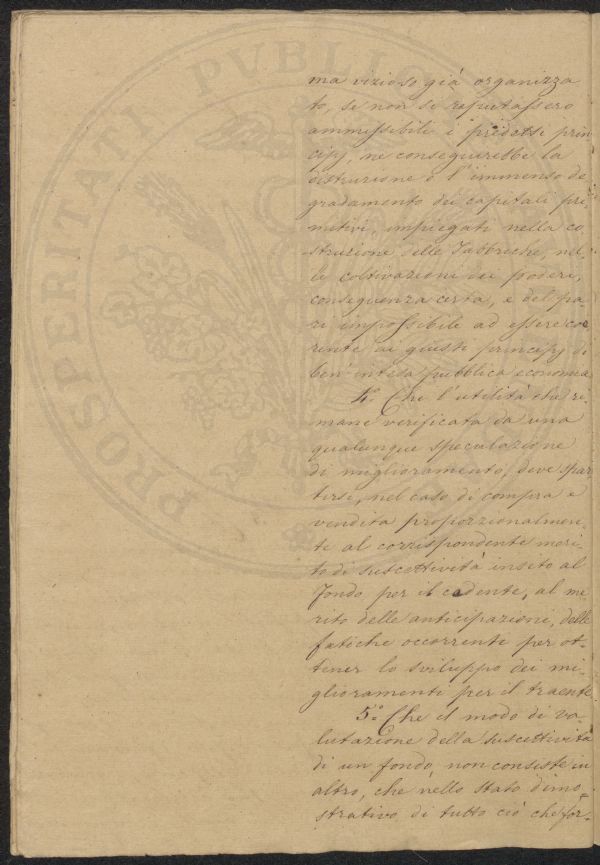 PROSPERITATI PVBLIC
ma vizioso già organizza
to, se non si reputassero
ammissibili i predetti prin
cipj, ne conseguirebbe la
distruzione o l'immenso de
gradamento dei capitali pri
mitivi, impiegati nella co
struzione delle Fabbriche, nel
le coltivazioni dei poderi,
conseguenza certa, e del pa
ri impossibile ad essere coe
rente ai giusti principj di
ben' intesa pubblica economia
4º. Che l'utilità che ri
mane verificata da una
qualunque speculazione
di miglioramento, deve spar
tirsi, nel caso di compra e
vendita proporzionalmen
te al corrispondente meri
to di suscettività insito al
Fondo per il cedente, al me
rito delle anticipazioni, delle
fatiche occorrente per ot=
tener lo sviluppo dei mi=
glioramenti per il traente
5º. Che il modo di va=
lutazione della suscettività
di un fondo, non consiste in
altro, che nello stato dimo=
strativo di tutto ciò che for=